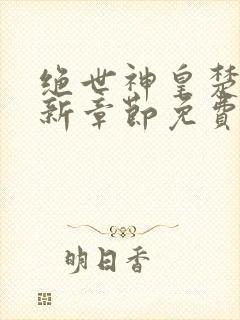 绝世神皇楚
新章節免費
明日香